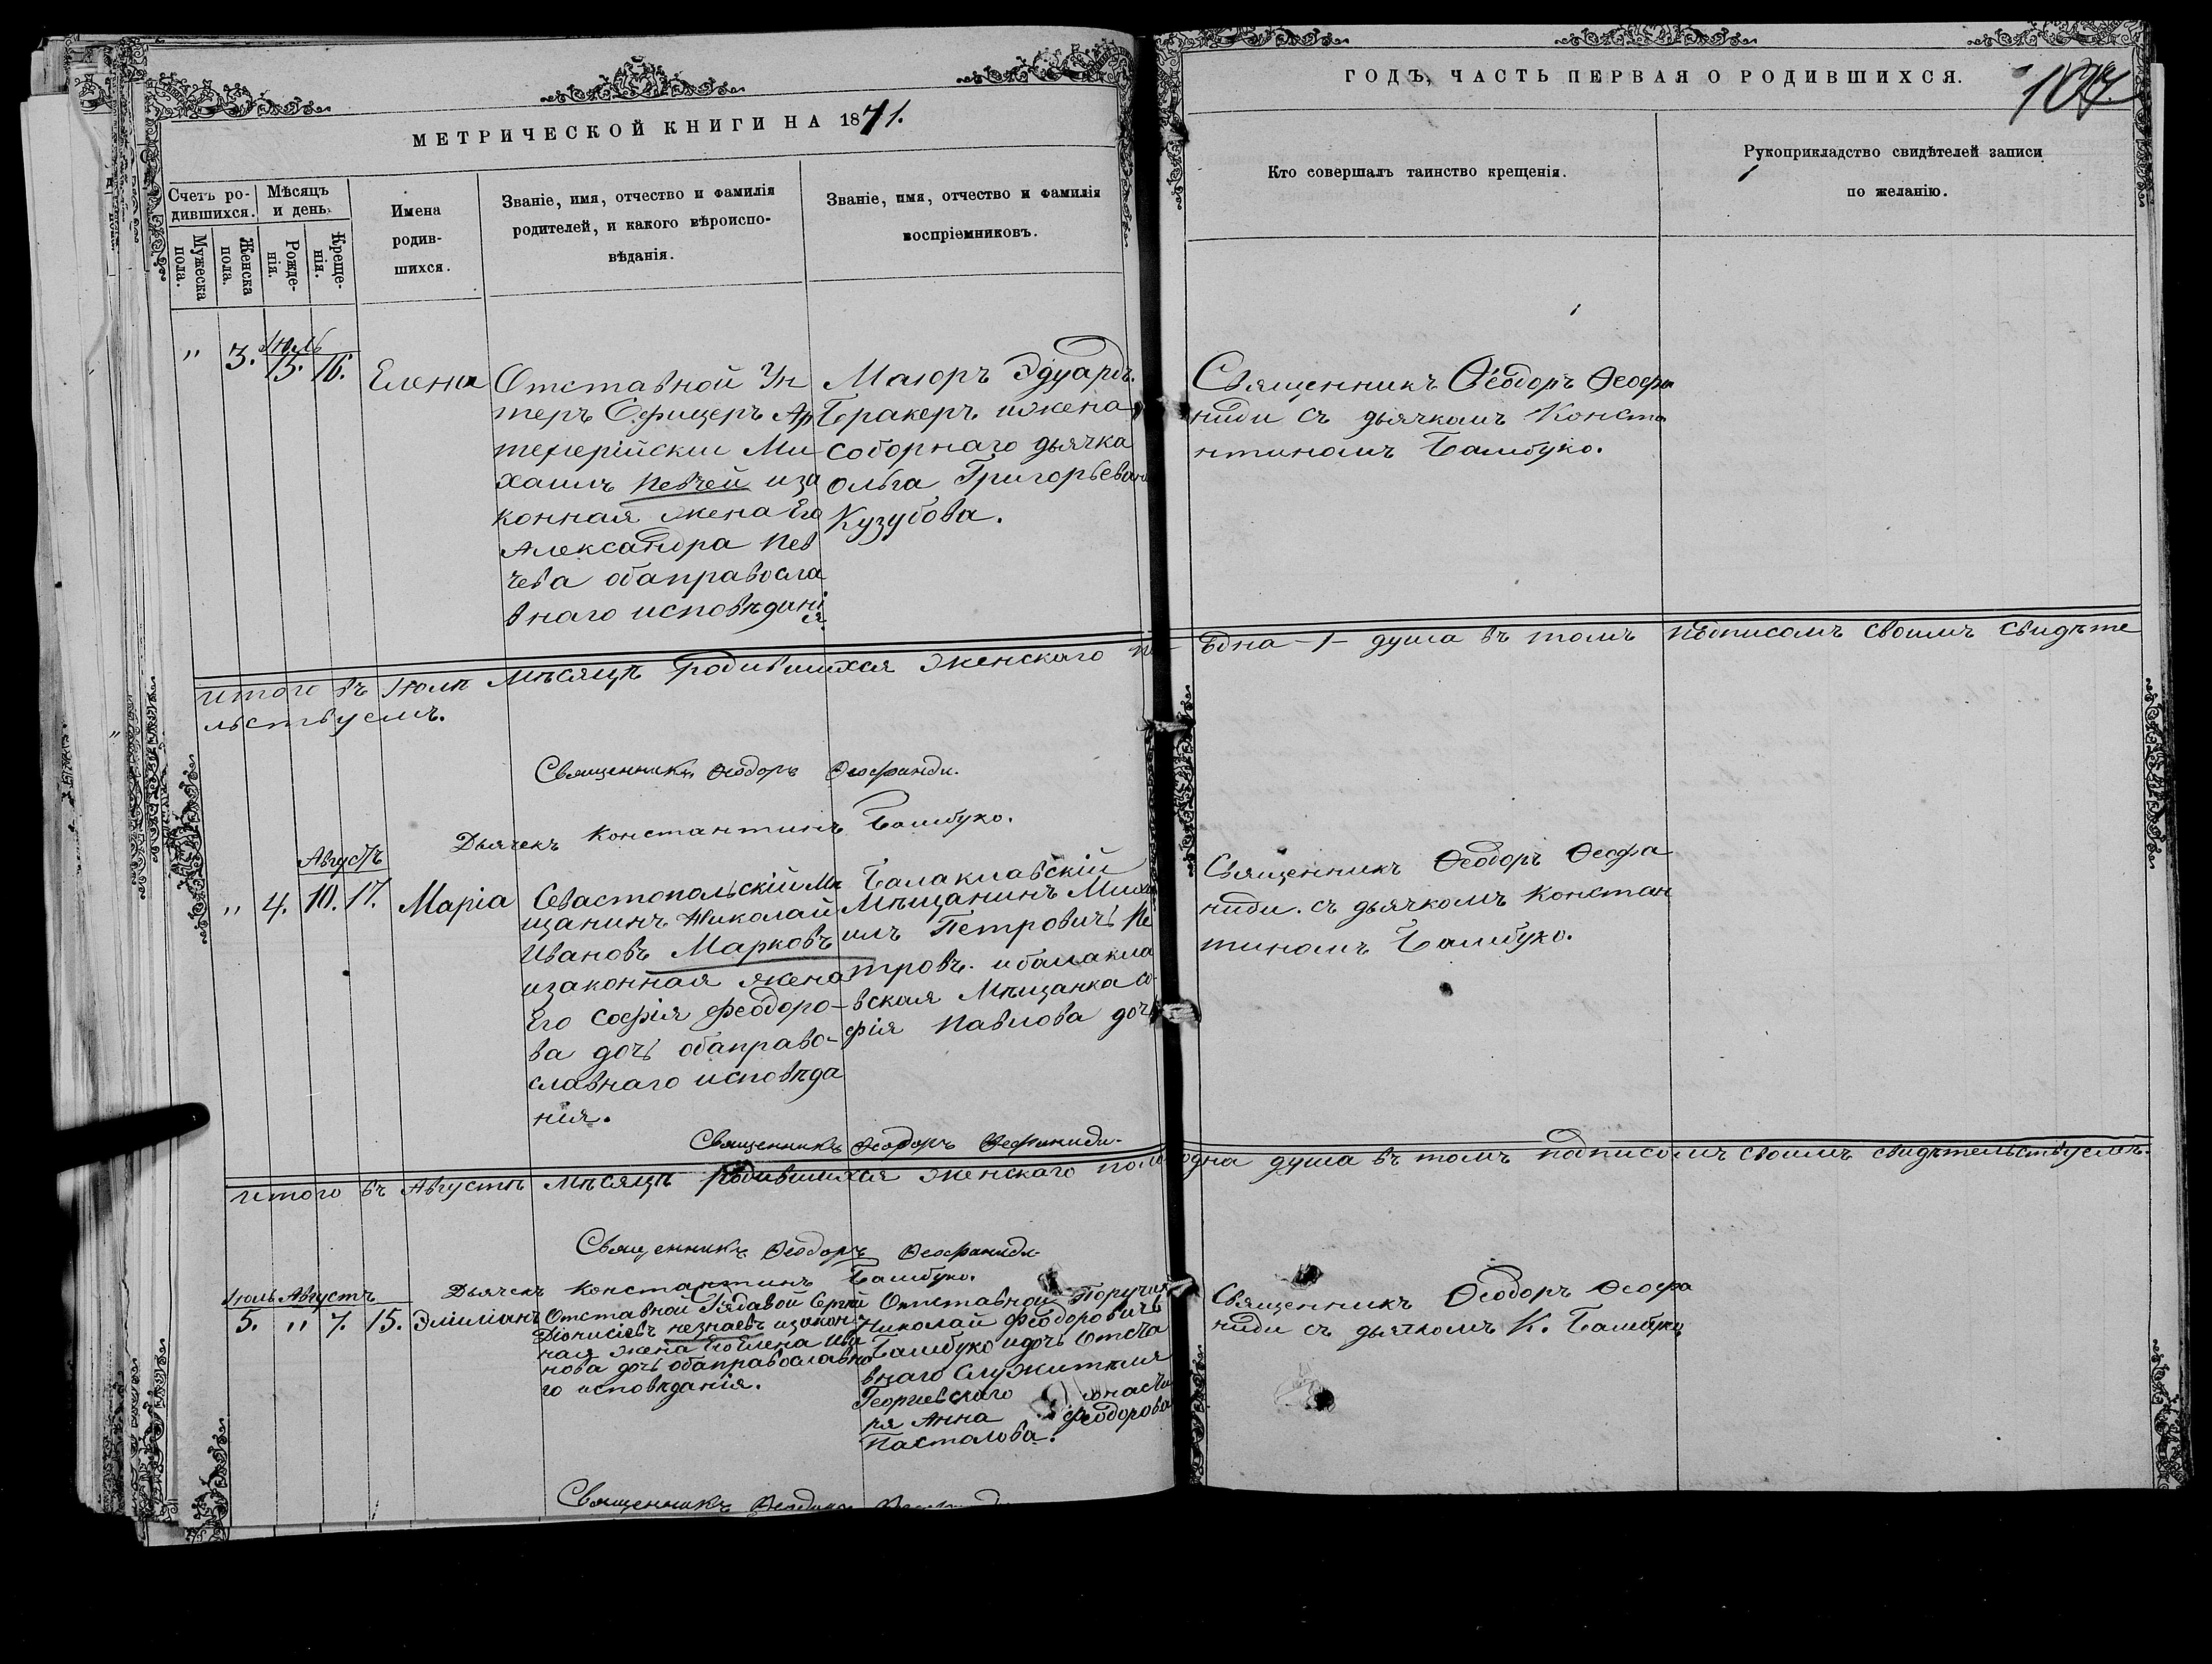 МЕТРИЧЕСКОЙ КНИГИ НА 1871.
Счетъ ро-
дившихся.
Мѣсяцъ
и день.
Мужеска
пола.
Женска
пола.
Рожде-
нія.
Креще-
нія.
Имена
родив-
шихся.
Званіе, имя, отчество и фамилія
родителей, и какого вѣроиспо-
вѣданія.
Званіе, имя, отчество и фамилія
воспріемниковъ.
ГОДЪ, ЧАСТЬ ПЕРВАЯ О РОДИВШИХСЯ.
Кто совершалъ таинство крещенія.
Рукоприкладство свидѣтелей записи
по желанію.
Іюль
" 3. 15. 16.
Елена
Отставной Ун
теръ Офицеръ Ар
Ми
хаилъ Певчей иза
конная жена Его
Александра Пев
чева обаправосла
внаго исповѣдані
я.
Маіоръ Эдуардъ
Геракеръ ижена
соборнаго дьячка
Ольга Григорьевана
Кузубова.
Священникъ Ѳеодоръ Ѳеофа
ниди съ дьячкомъ Конста
нтиномъ Бамбуко.
итого въ Іюлѣ мѣсяцѣ родившихся женскаго по- Една -1- душа въ томъ подписомъ своимъ свидѣте
льствуемъ.
Священникъ Ѳеодоръ Ѳеофаниди.
Дьячекъ Константинъ Бамбуко.
Августъ
" 4. 10. 17.
Марія
Севастопольскій Мѣ
щанинъ Николай
Ивановъ Марковъ
изаконная жена
Его Софія Феодоро-
ва дочь обаправо-
славнаго исповѣда
нія.
Балаклавскій
Мѣщанинъ Миха
илъ Петровичъ Пе
тровъ. ибалакла
вская Мѣщанка Со
фія Павлова дочь
Священникъ Ѳеодоръ Ѳеофа
ниди. съ дьячкомъ Констан
тиномъ Бамбуко.
Священникъ Ѳеодоръ Ѳеофаниди.
итого въ Августѣ мѣсяцѣ родившихся женскаго пола одна душа въ томъ подписомъ своимъ свидѣтельствуемъ.
Священникъ Ѳеодоръ Ѳеофаниди.
Дьячекъ Константинъ Бамбуко.
Іюль Августъ
5. " 7. 15.
Эмиліанъ
Отставной Рядавой Сергій
Діонисіевъ незнаевъ изакон
ная жена Его Елена Ива
нова дочь обаправославна
го исповѣданія.
Отставной Поручикъ
Николай Феодоровичъ
Бамбуко идочь Отста
внаго Служителя
Георгіевскаго Монасты
ря Анна Феодорова
Пасталова.
Священникъ Ѳеодоръ Ѳеофа
ниди съ дьячкомъ К. Бамбуко
Священникъ Ѳеодоръ